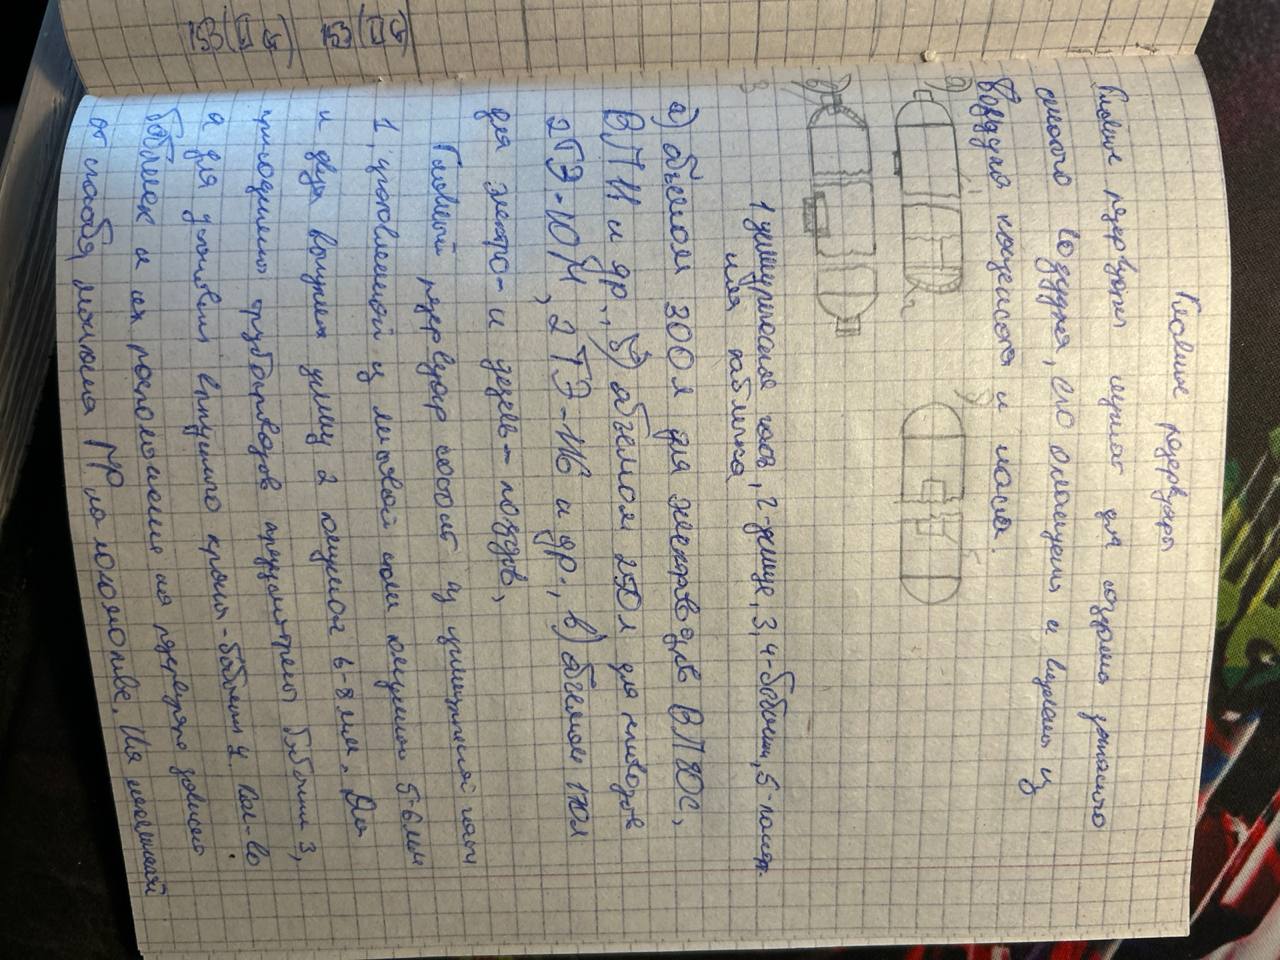 Главные резервуары
Главные резервуары служат для создания запаса
сжатого воздуха, его охлаждения и выделения из
воздуха конденсата и масла.
а)
б)
1 цилиндрическая часть, 2-днище, 3, 4-бобышки, 5-паспорт-
ная табличка
а) объемом 300л для электровозов ВЛ80С,
ВЛ11 и др., б) объемом 250л для тепловозов
2ТЭ-10М, 2ТЭ-116 и др., в) объемом 170л
для электро- и дизель- поездов,
Главный резервуар состоит из цилиндрической части
1, изготовленной из листовой стали толщиной 5-6мм
и двух выпуклых днищ 2 толщиной 6-8мм. Для
присоединения трубопроводов предусмотрены бобышки 3,
а для установки выпускного крана - бобышка 4. Кол-во
бобышек и их расположение на резервуаре зависит
от способа монтажа ГР на локомотиве. На